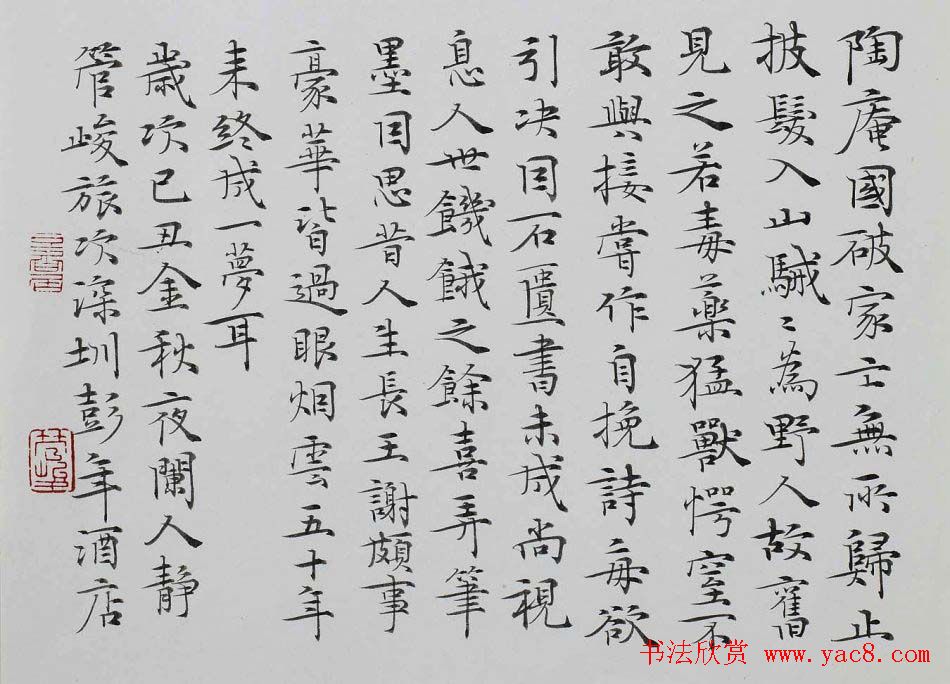 陶庵國破家亡無所歸止
披髮入山駴〻為野人故舊
見之若毒藥猛獸愕窒不
敢與接嘗作自挽詩毎欲
引決因石匱書未成尚視
息人世饑餓之餘喜弄筆
墨因思昔人生長王謝頗事
豪華皆過眼烟雲五十年
来終成一夢耳
歲次己丑金秋夜闌人静
管峻旅次深圳彭年酒店
书法欣赏 www.yac8.com